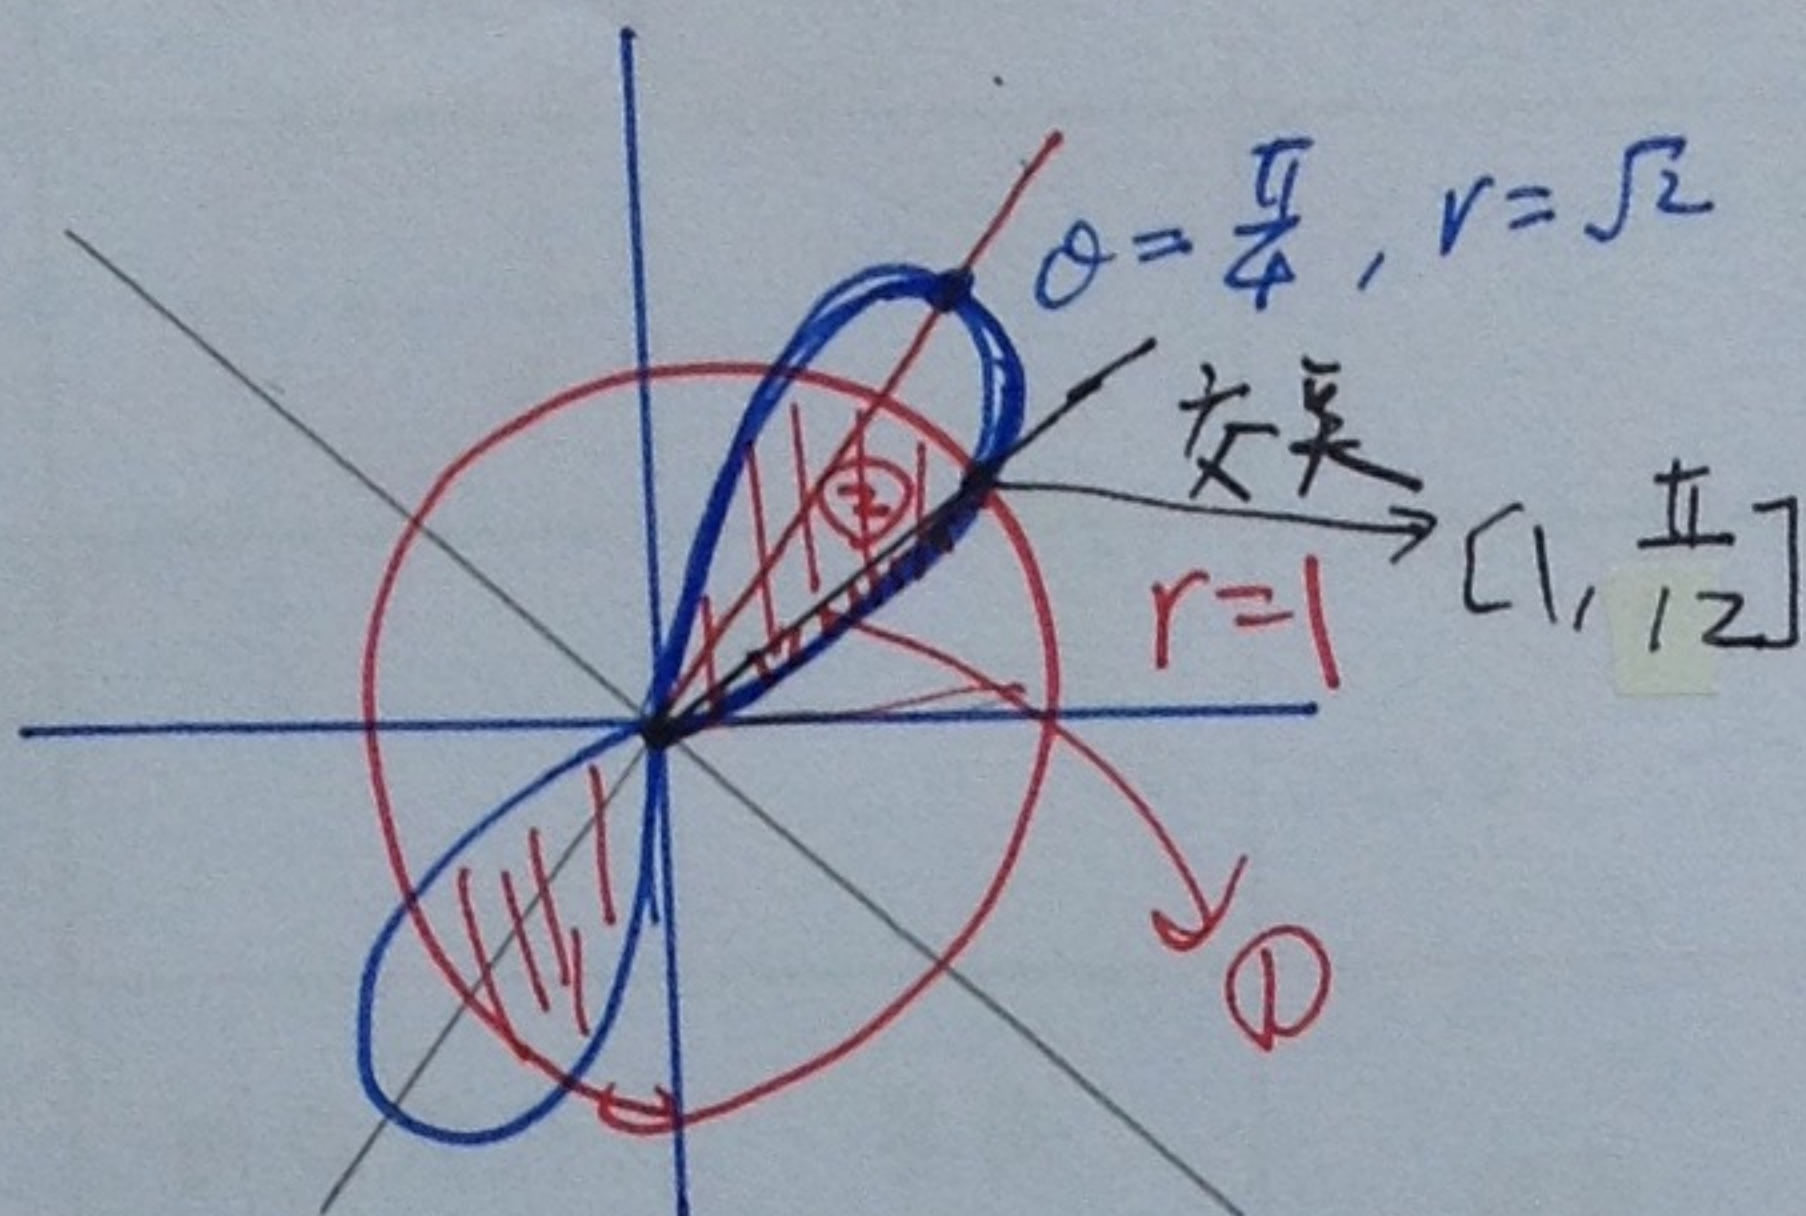 θ = π/4, r = √2
交点
[1, π/12]
r = 1
②
①